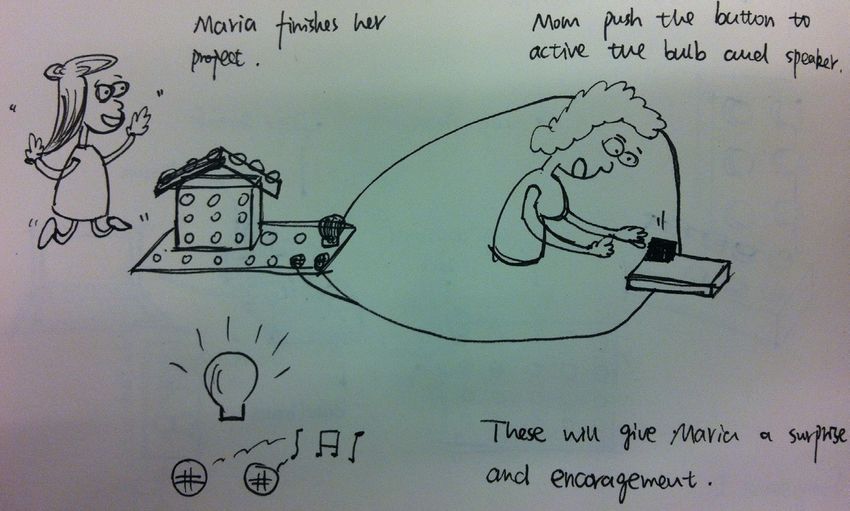 Maria finishes her
project.
Mom push the button to
active the bulb and speaker.
These will give Maria a surprise
and encoragement.